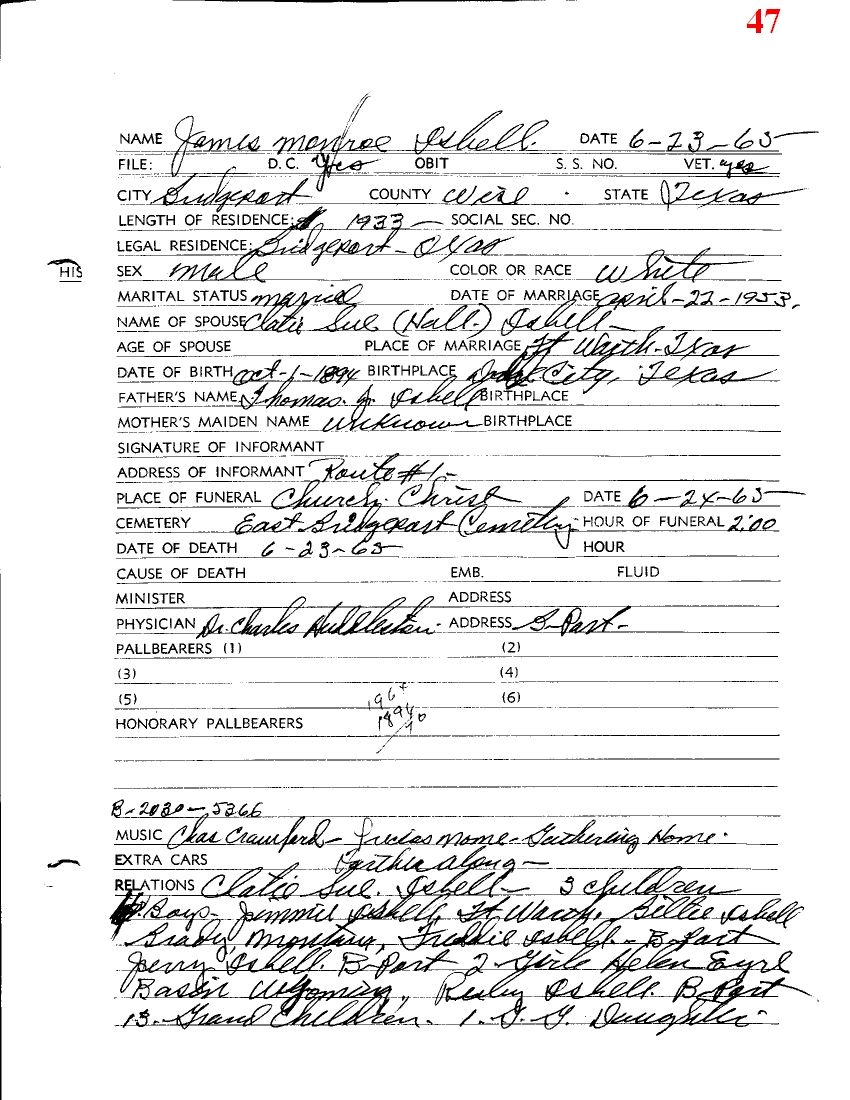 47
NAME James Monroe Isbell DATE 6-23-65
FILE: D.C. Yes OBIT S.S. NO. VET. yes
CITY Bridgeport COUNTY Wise STATE Texas
LENGTH OF RESIDENCE: 1933 SOCIAL SEC. NO.
LEGAL RESIDENCE: Bridgeport - Texas
HIS
SEX male COLOR OR RACE white
MARITAL STATUS married DATE OF MARRIAGE april-22-1953.
NAME OF SPOUSE Clatie Sue (Hall) Isbell
AGE OF SPOUSE PLACE OF MARRIAGE Ft Worth-Texas
DATE OF BIRTH oct-1-1894 BIRTHPLACE City, Texas
FATHER'S NAME Thomas J Isbell BIRTHPLACE
MOTHER'S MAIDEN NAME unknown BIRTHPLACE
SIGNATURE OF INFORMANT
ADDRESS OF INFORMANT Route #1-
PLACE OF FUNERAL Church Christ DATE 6-24-65
CEMETERY East Bridgeport Cemetery HOUR OF FUNERAL 2:00
DATE OF DEATH 6-23-65 HOUR
CAUSE OF DEATH EMB. FLUID
MINISTER ADDRESS
PHYSICIAN Dr. Charles Huddleston ADDRESS B-Port-
PALLBEARERS (1) (2)
(3) (4)
(5) (6)
1964
1894
HONORARY PALLBEARERS
70
B-2030-5366
MUSIC Chas Crawford - Precious Mome - Gathering Home.
EXTRA CARS Farther along -
RELATIONS Clatie Sue. Isbell - 3 children
Boys - Jimmie Isbell, Ft. Worth, Billie Isbell
Brady, Montana, Freddie Isbell - B-Port
Jerry Isbell. B-Port 2-Girls Helen Eyrl
Basin Wyoming, Isbell. B-Port
13-Grand Children. 1. G. G. Daughter-